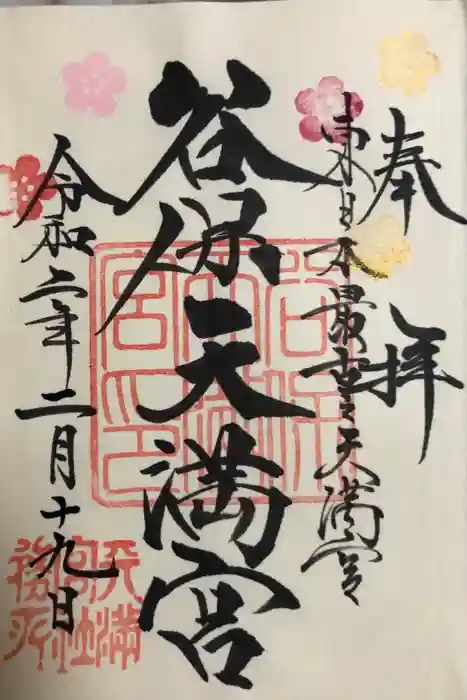 奉拝
東日本最古天満宮
谷保天満宮
令和二年二月十九日
谷保天満宮印
天満宮社務所